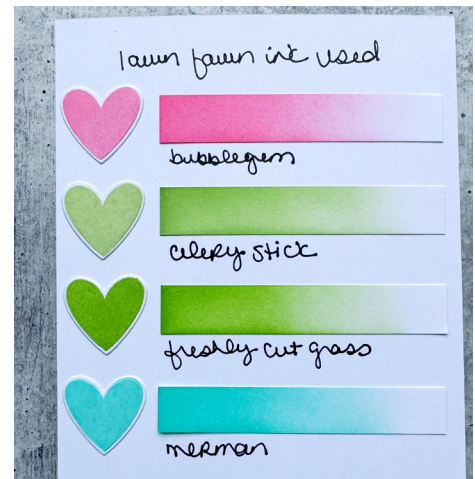 lawn fawn ink used
bubblegum
celery stick
freshly cut grass
merman